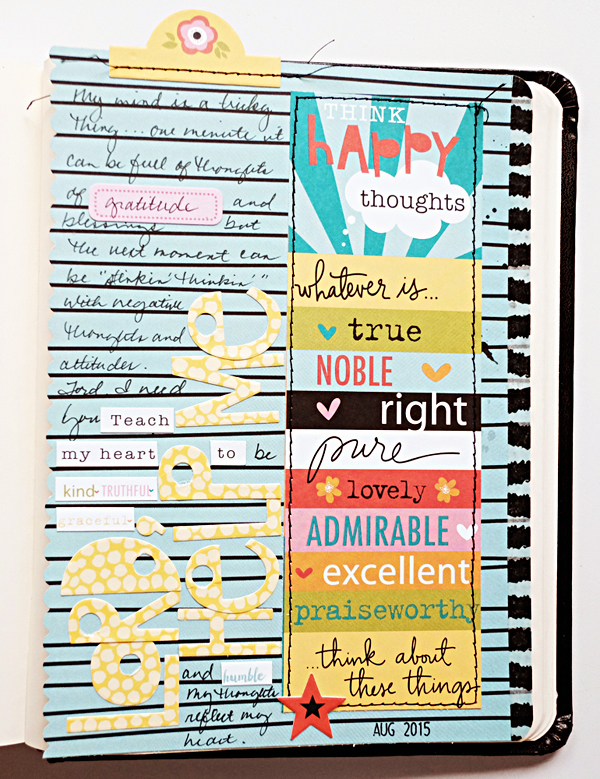 My mind is a tricky
Thing...one minute it
can be full of thoughts
of gratitude and
blessings but
the next moment can
be "stinkin' thinkin'"
with negative
thoughts and
attitudes.
Lord I need
you Teach
my heart to be
kind TRUTHFUL
graceful
and humble
my thoughts
reflect my
heart.
LoRD,
HeLP Me
THINK
hAPPY
thoughts
whatever is...
true
NOBLE
right
pure
lovely
ADMIRABLE
excellent
praiseworthy
...think about
these things
AUG 2015